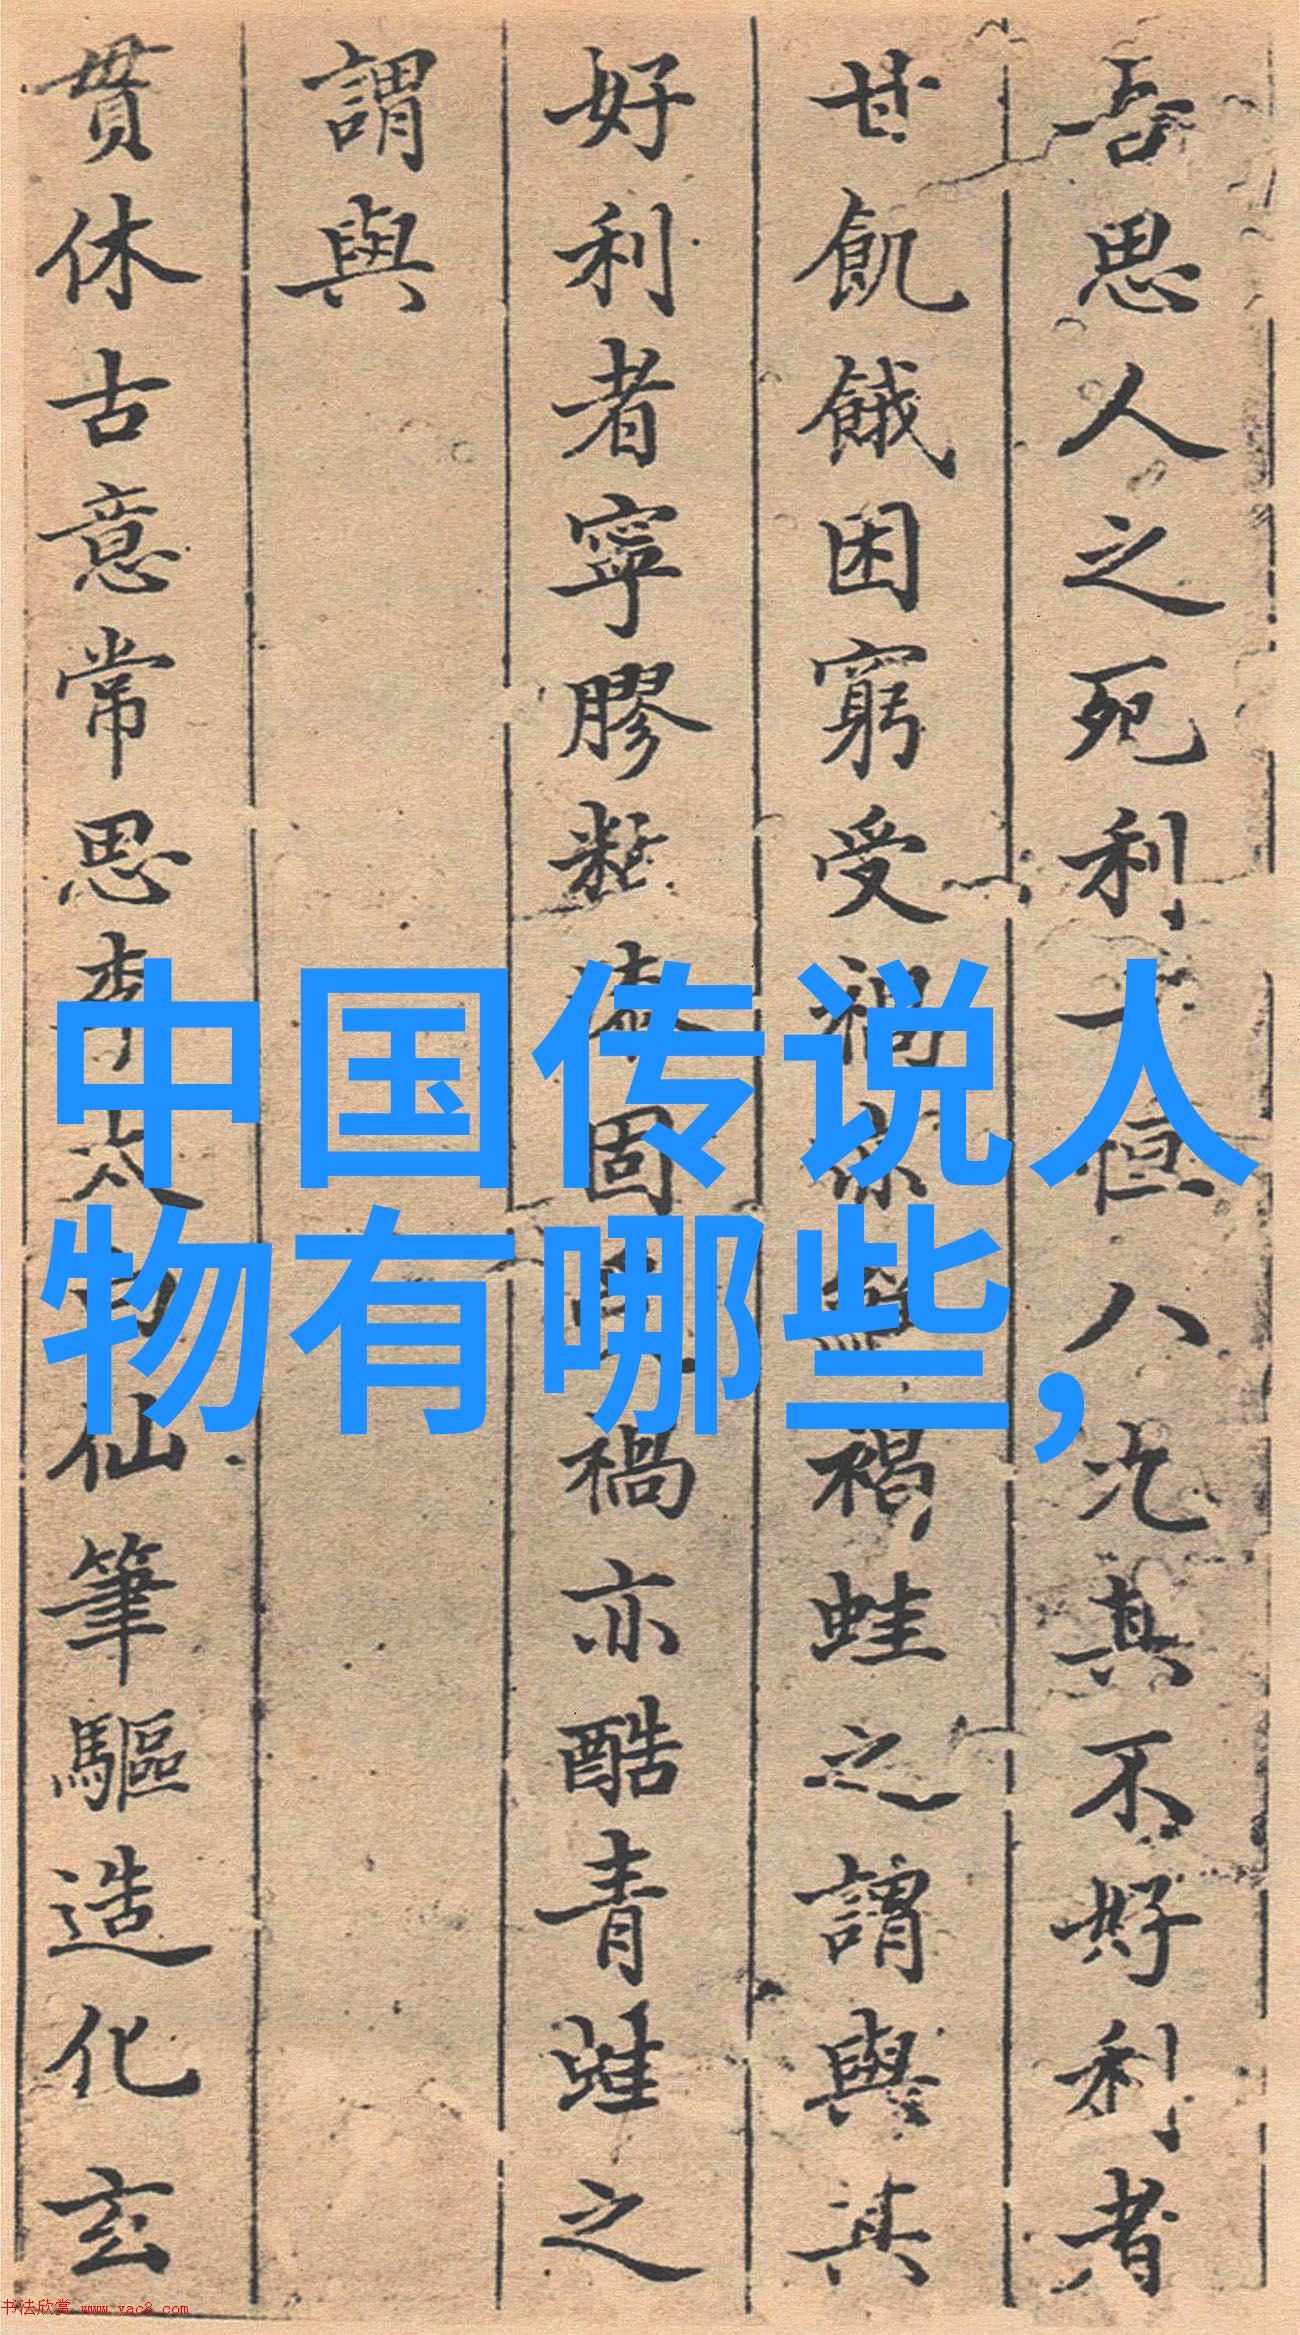 中国传说人
物有哪些,
吾思人之死利十恒八九其不好利者
甘飢餓困窮受禍亦禍蛙之謂與其
好利者寧膠固禍亦酷青蛙之
謂與
貫休古意常思李太白仙筆驅造化玄
书法欣赏 www.yac8.com